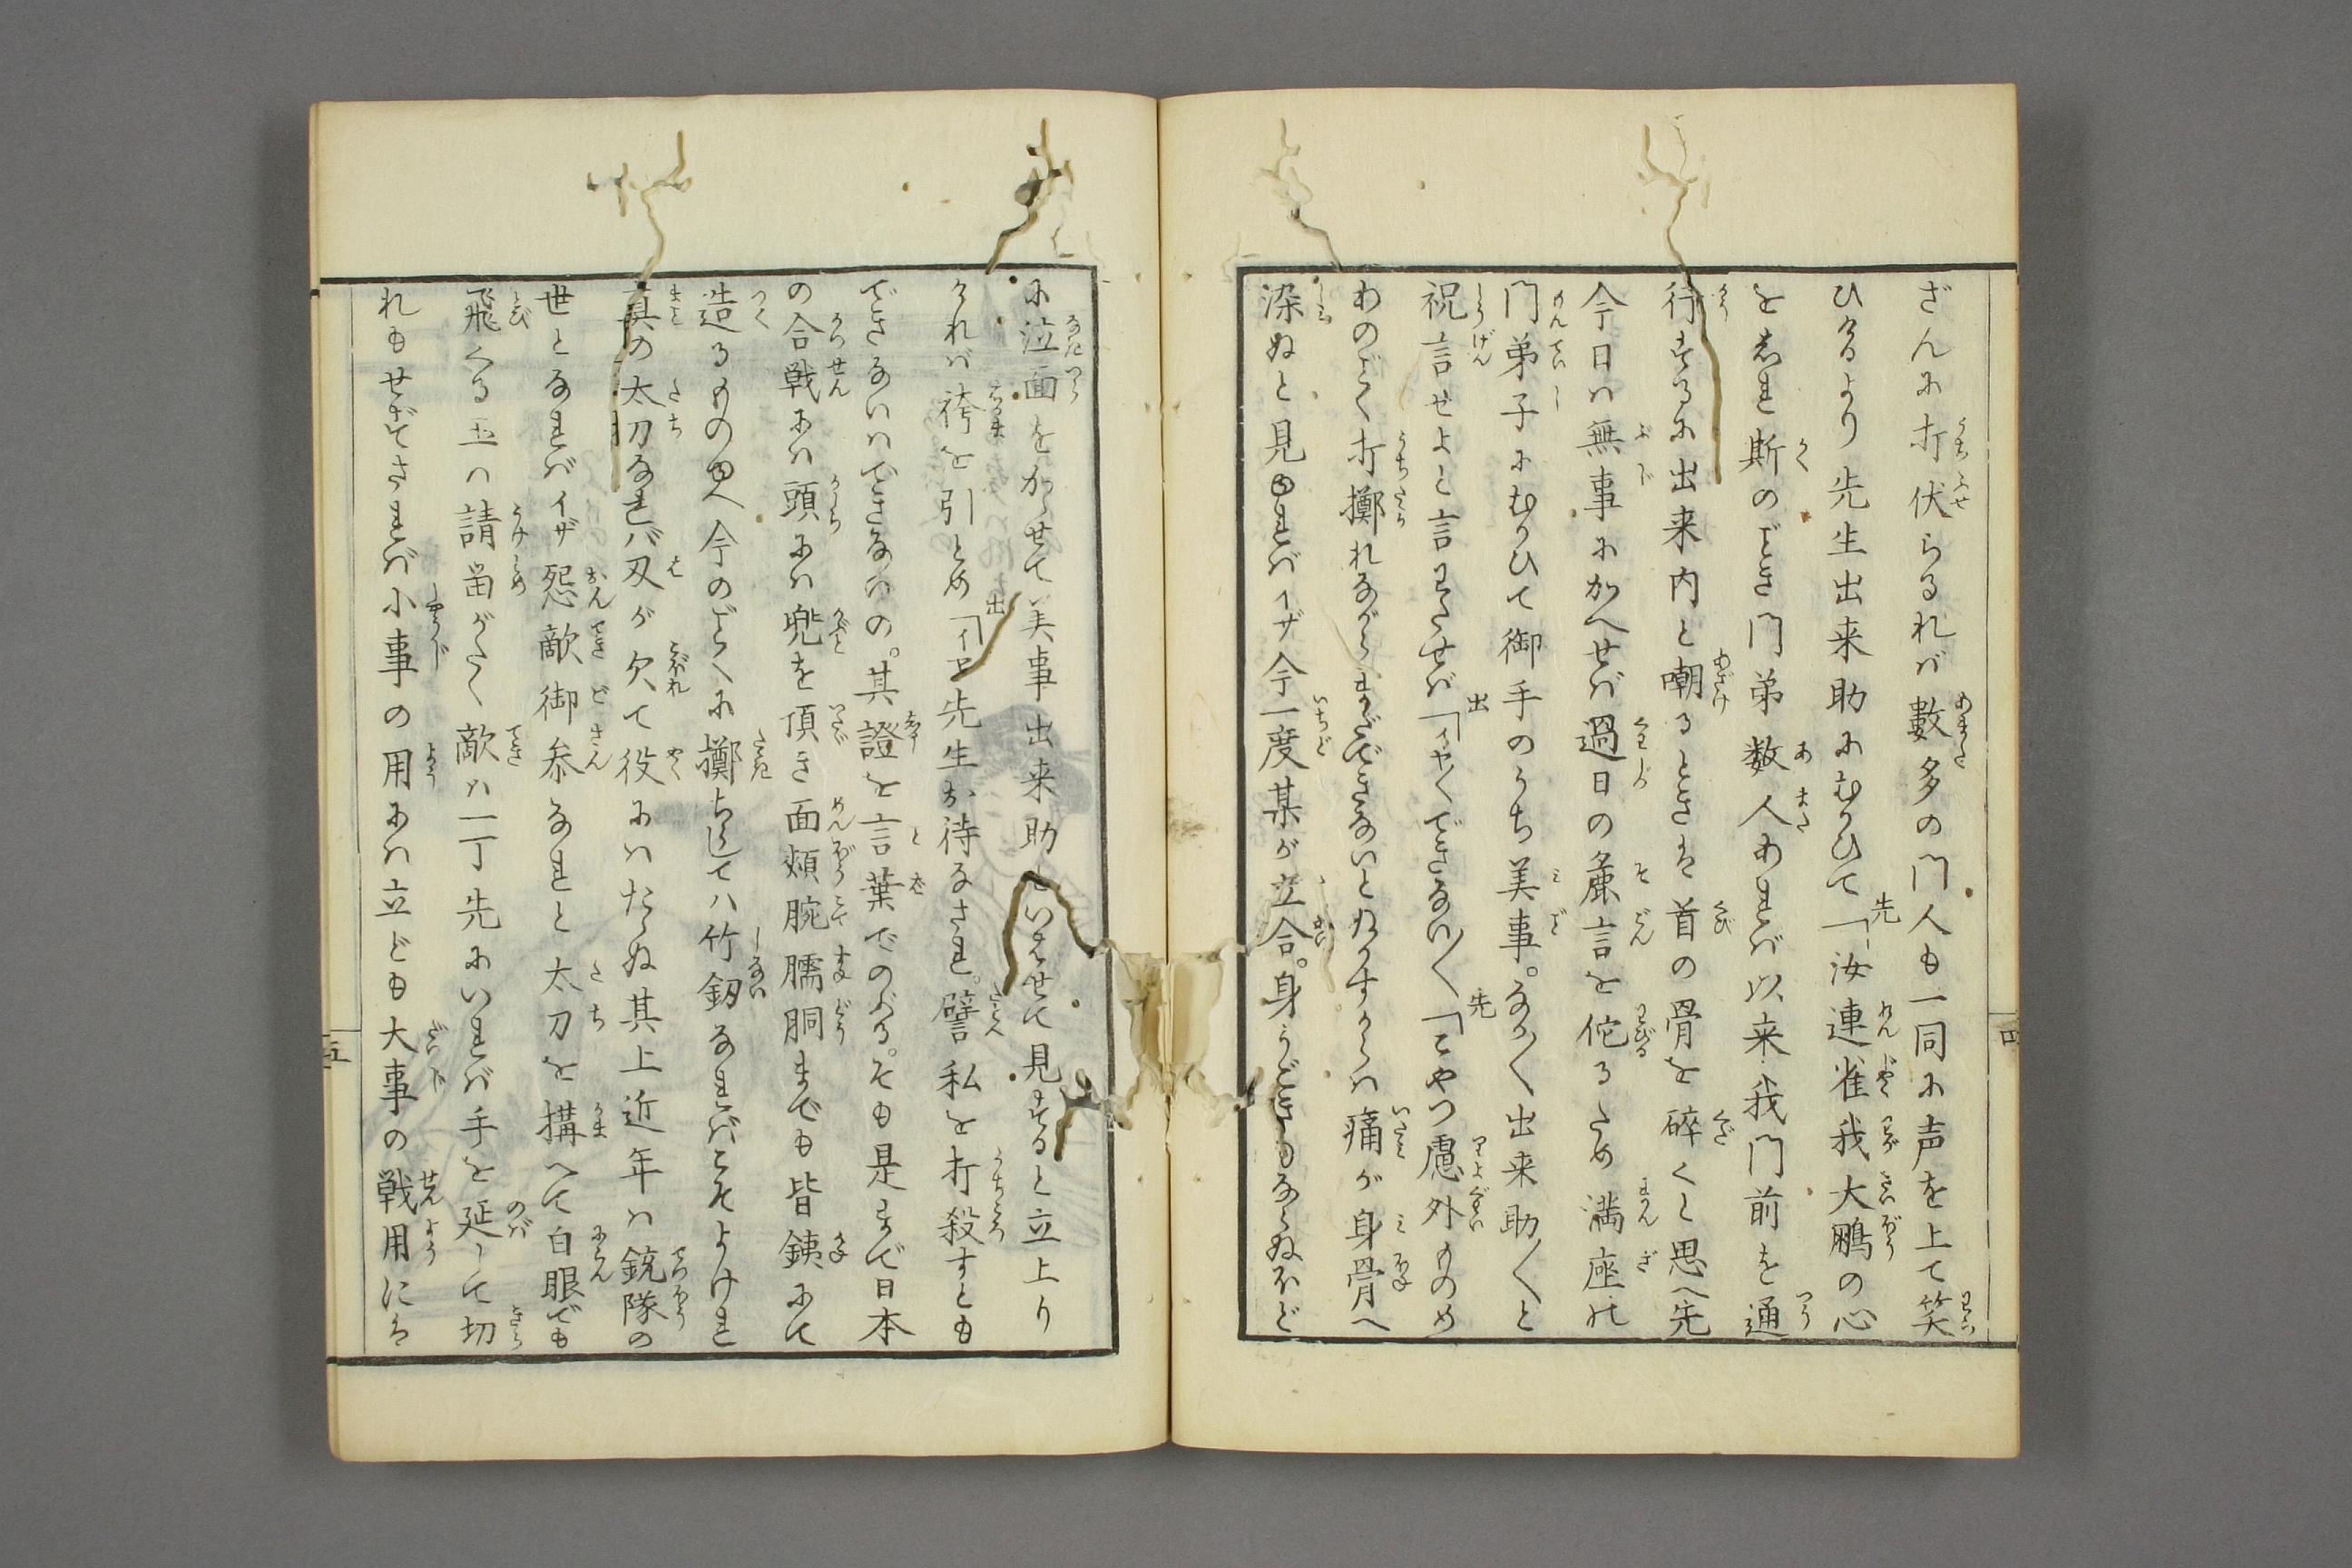 ざんに打伏らるれバ數多の門人も一同に声を上て笑
ひけるより先生出来助にむかひて「汝連雀我大鵬の心
を志れ斯のごとき門弟数人あれバ以来我門前を通
行するに出来内と嘲るときは首の骨を碎くと思へ先
今日ハ無事にかへせバ過日の麁言を佗るため満座の
門弟子にむかひて御手のうち美事。なか〳〵出来助〳〵と
祝言せよと言わたせバ「イヤ〳〵できない〳〵「こやつ慮外ものめ
あのごく打擲れながらまだできないとぬかすからハ痛が身骨へ
染ぬと見ゆれバイザ今一度某が立合。身うごきもならぬほど
に泣面をかゝせて美事出来助といはせて見すると立上り
ければ袴を引とめ「イヤ先生お待なされ。譬私を打殺すとも
できないハできないの。其證を言葉でのぶる。そも是まで日本
の合戦にハ頭にハ兜を頂き面頬腕臑胴までも皆銕にて
造るものゆへ今のごとくに擲ちらしてハ竹釼なれバこそよけれ
真の太刀なれバ刃が欠て役にハたゝぬ其上近年ハ銃隊の
世となれバイザ怨敵御参なれと太刀を搆へて白眼でも
飛くる玉ハ請留がたく敵ハ一丁先にいれバ手を延して切
れもせずされバ小事の用にハ立ども大事の戦用にハ
四
五